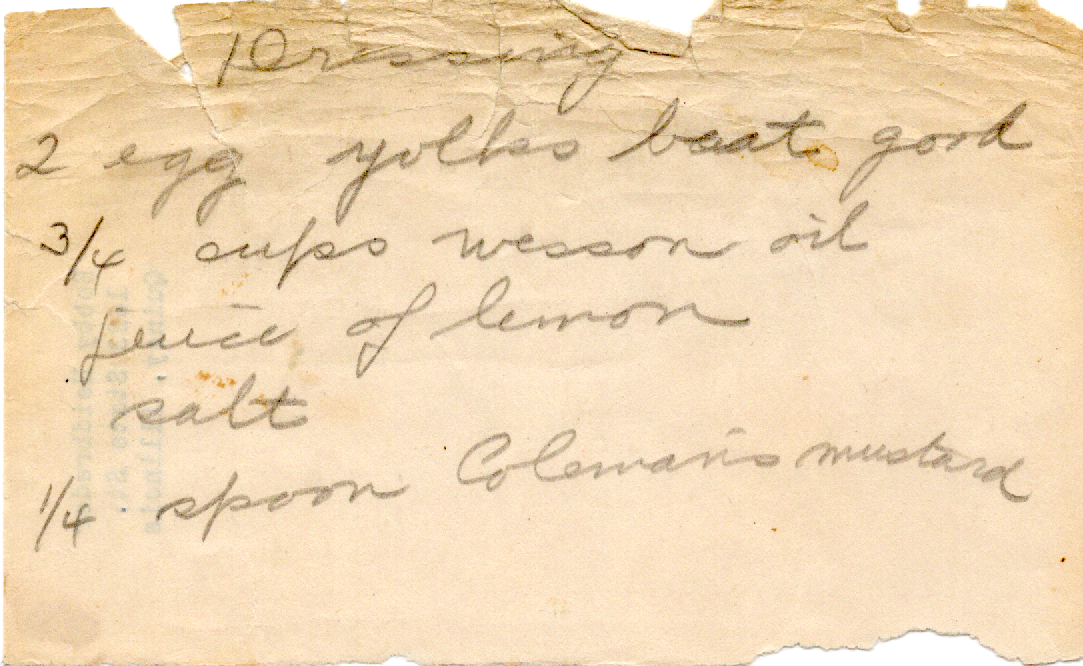 Dressing
2 egg yolks beat good
3/4 cups wesson oil
jeuice of lemon
salt
1/4 spoon Coleman's mustard